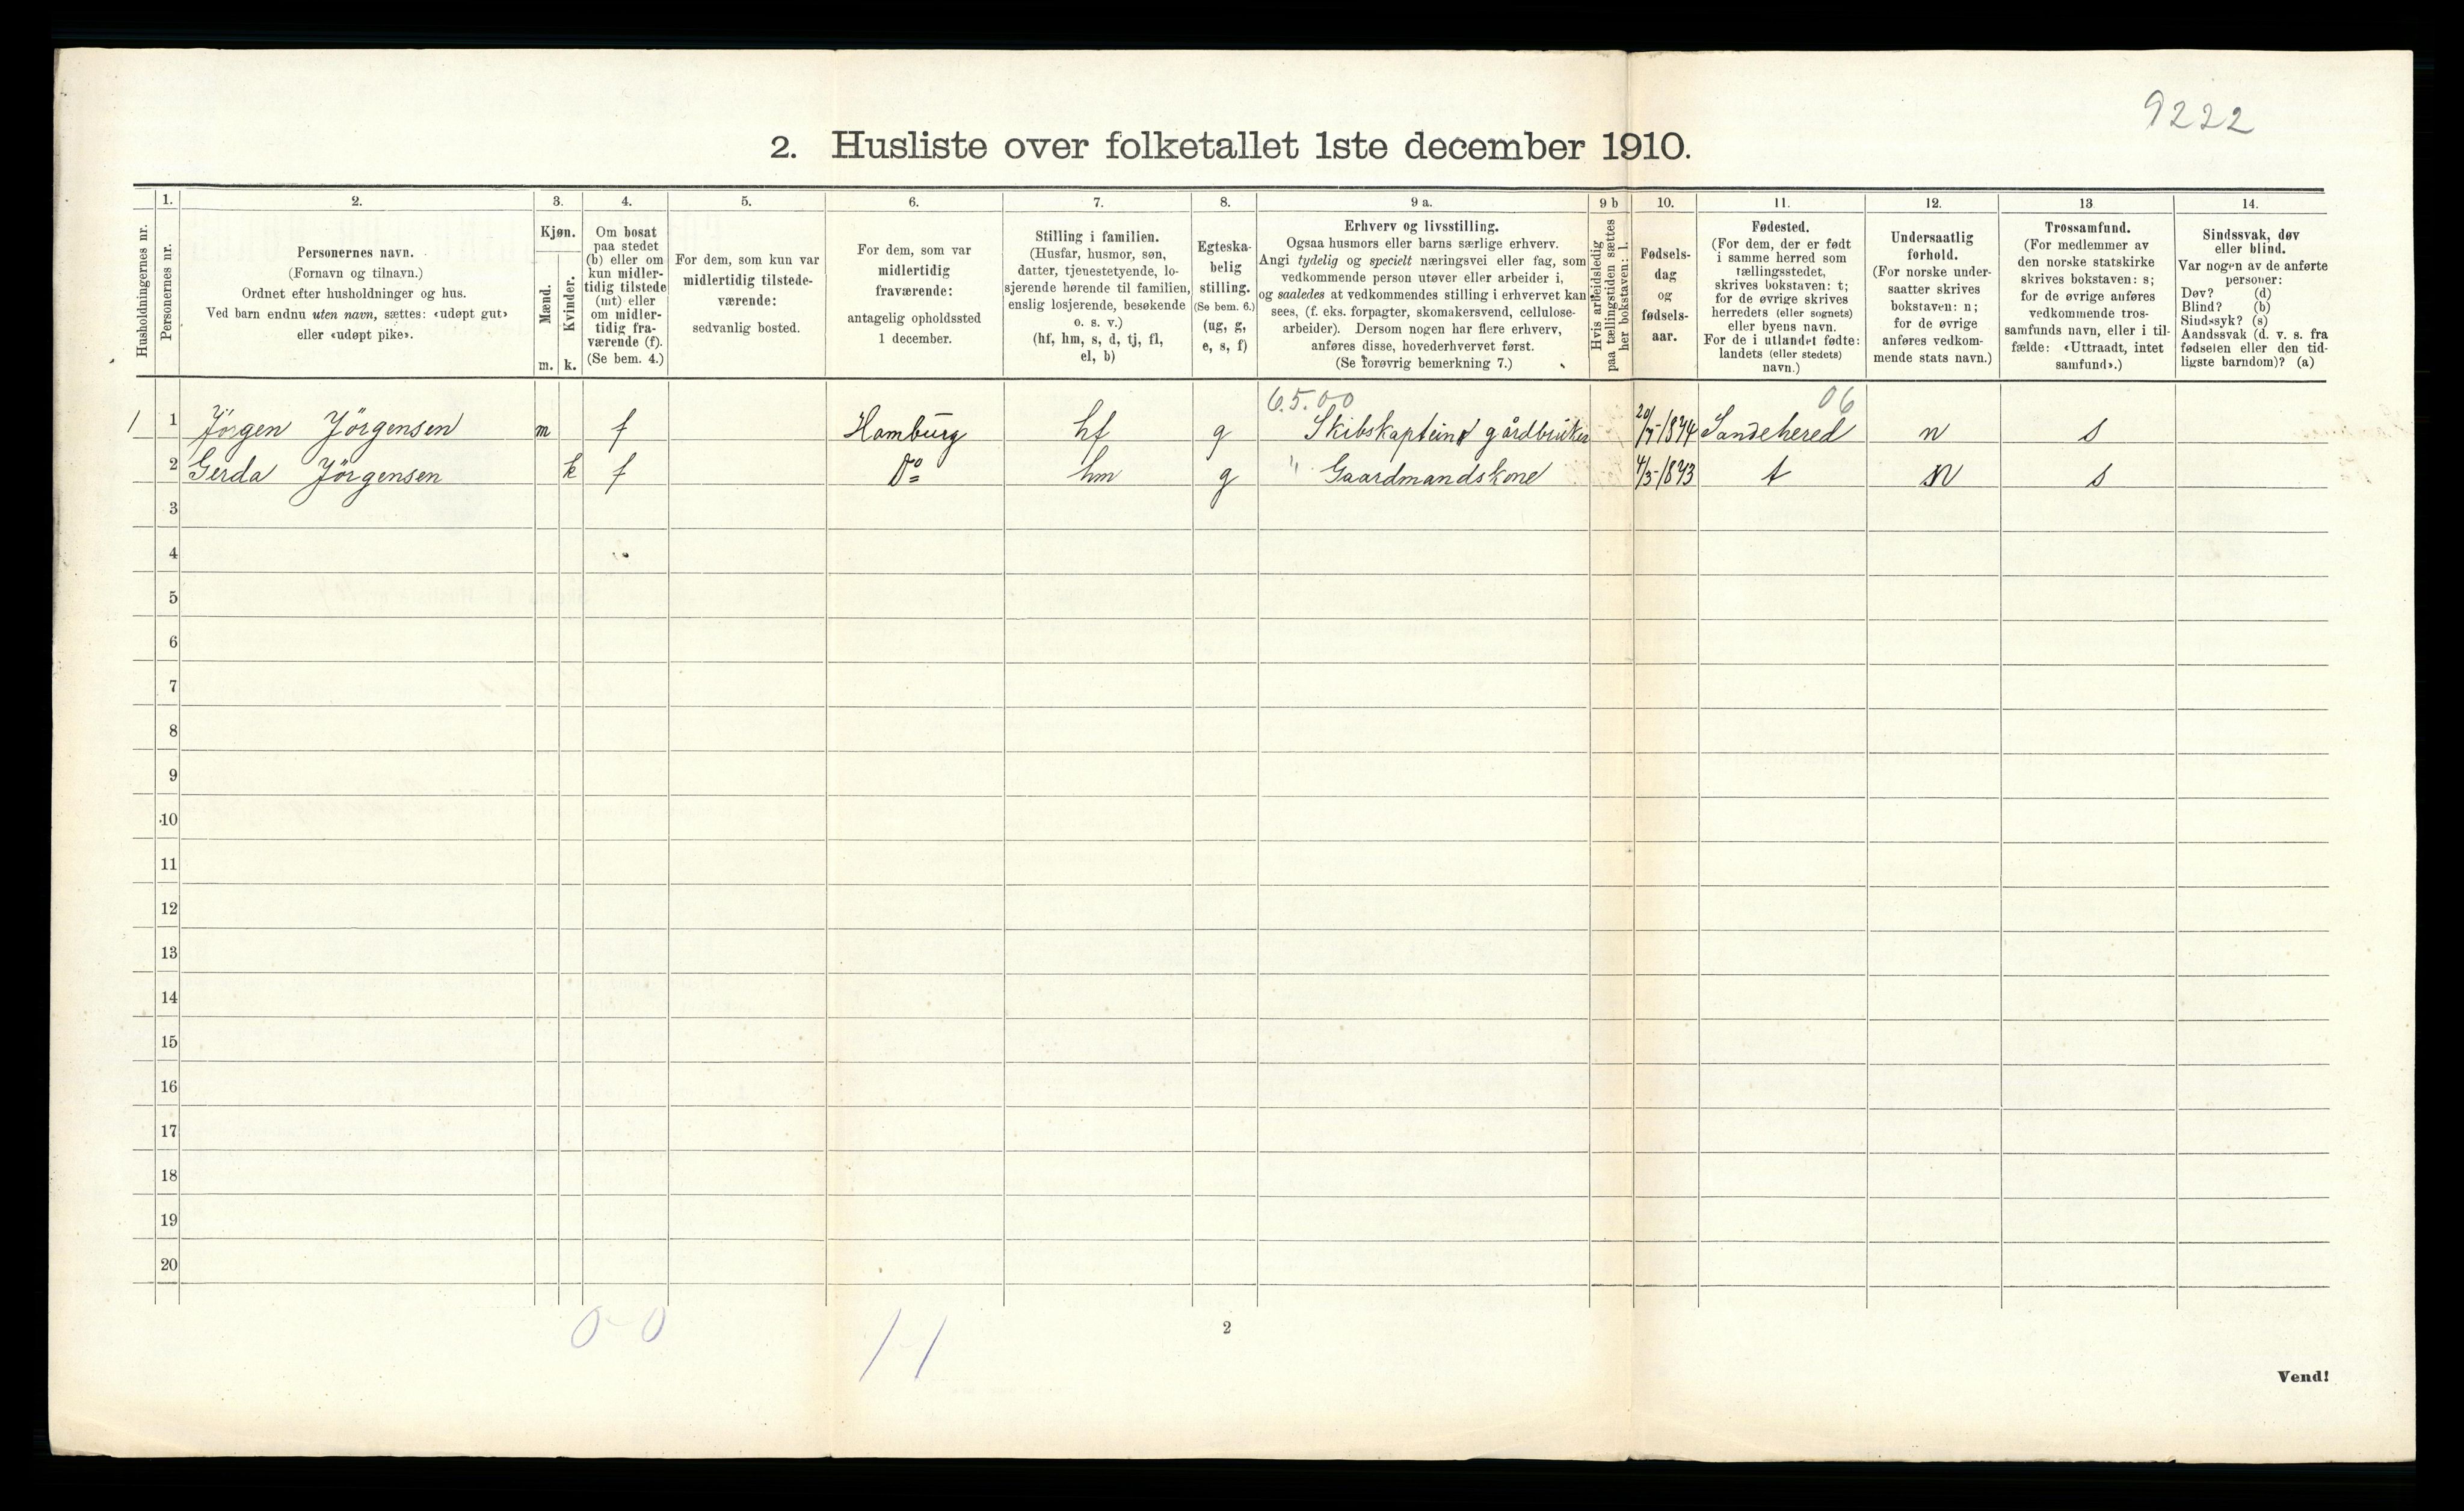 9222
2. Husliste over folketallet 1ste december 1910.
1. 2. 3. 4. 5. 6. 7. 8. 9 a. 9 b 10. 11. 12. 13 14.
Husholdningernes nr.
Personernes nr.
Personernes navn.
(Fornavn og tilnavn.)
Ordnet efter husholdninger og hus.
Ved barn endnu uten navn, sættes: «udøpt gut»
eller «udøpt pike».
Kjøn.
Mænd.
m.
Kvinder.
k.
Om bosat
paa stedet
(b) eller om
kun midler-
tidig tilstede
(mt) eller
om midler-
tidig fra-
værende (f).
(Se bem. 4.)
For dem, som kun var
midlertidig tilstede-
værende:
sedvanlig bosted.
For dem, som var
midlertidig
fraværende:
antagelig opholdssted
1 december.
Stilling i familien.
(Husfar, husmor, søn,
datter, tjenestetyende, lo-
sjerende hørende til familien,
enslig losjerende, besøkende
o. s. v.)
(hf, hm, s, d, tj, fl,
el, b)
Egteska-
belig
stilling.
(Se bem. 6.)
(ug, g,
e, s, f)
Erhverv og livsstilling.
Ogsaa husmors eller barns særlige erhverv.
Angi tydelig og specielt næringsvei eller fag, som
vedkommende person utøver eller arbeider i,
og saaledes at vedkommendes stilling i erhvervet kan
sees, (f. eks. forpagter, skomakersvend, cellulose-
arbeider). Dersom nogen har flere erhverv,
anføres disse, hovederhvervet først.
(Se forøvrig bemerkning 7.)
Hvis arbeidsledig
paa tællingstiden sættes
her bokstaven: l.
Fødsels-
dag
og
fødsels-
aar.
Fødested.
(For dem, der er født
i samme herred som
tællingsstedet,
skrives bokstaven: t;
for de øvrige skrives
herredets (eller sognets)
eller byens navn.
For de i utlandet fødte:
landets (eller stedets)
navn.)
Undersaatlig
forhold.
(For norske under-
saatter skrives
bokstaven: n;
for de øvrige
anføres vedkom-
mende stats navn.)
Trossamfund.
(For medlemmer av
den norske statskirke
skrives bokstaven: s;
for de øvrige anføres
vedkommende tros-
samfunds navn, eller i til-
fælde: «Uttraadt, intet
samfund».)
Sindssvak, døv
eller blind.
Var nogen av de anførte
personer:
Døv? (d)
Blind? (b)
Sindssyk? (s)
Aandssvak (d. v. s. fra
fødselen eller den tid-
ligste barndom)? (a)
6.5.00 06
1 1 Jörgen Jörgensen m f Hamburg hf g Skibskaptein gårdbruker Sandehered n s
2 Gerda Jörgensen k f Do hm g " Gaardmandskone 4/3-1873 t N s
3
4
5
6
7
8
9
10
11
12
13
14
15
16
17
18
19
20
0-0 1-1
2
Vend!